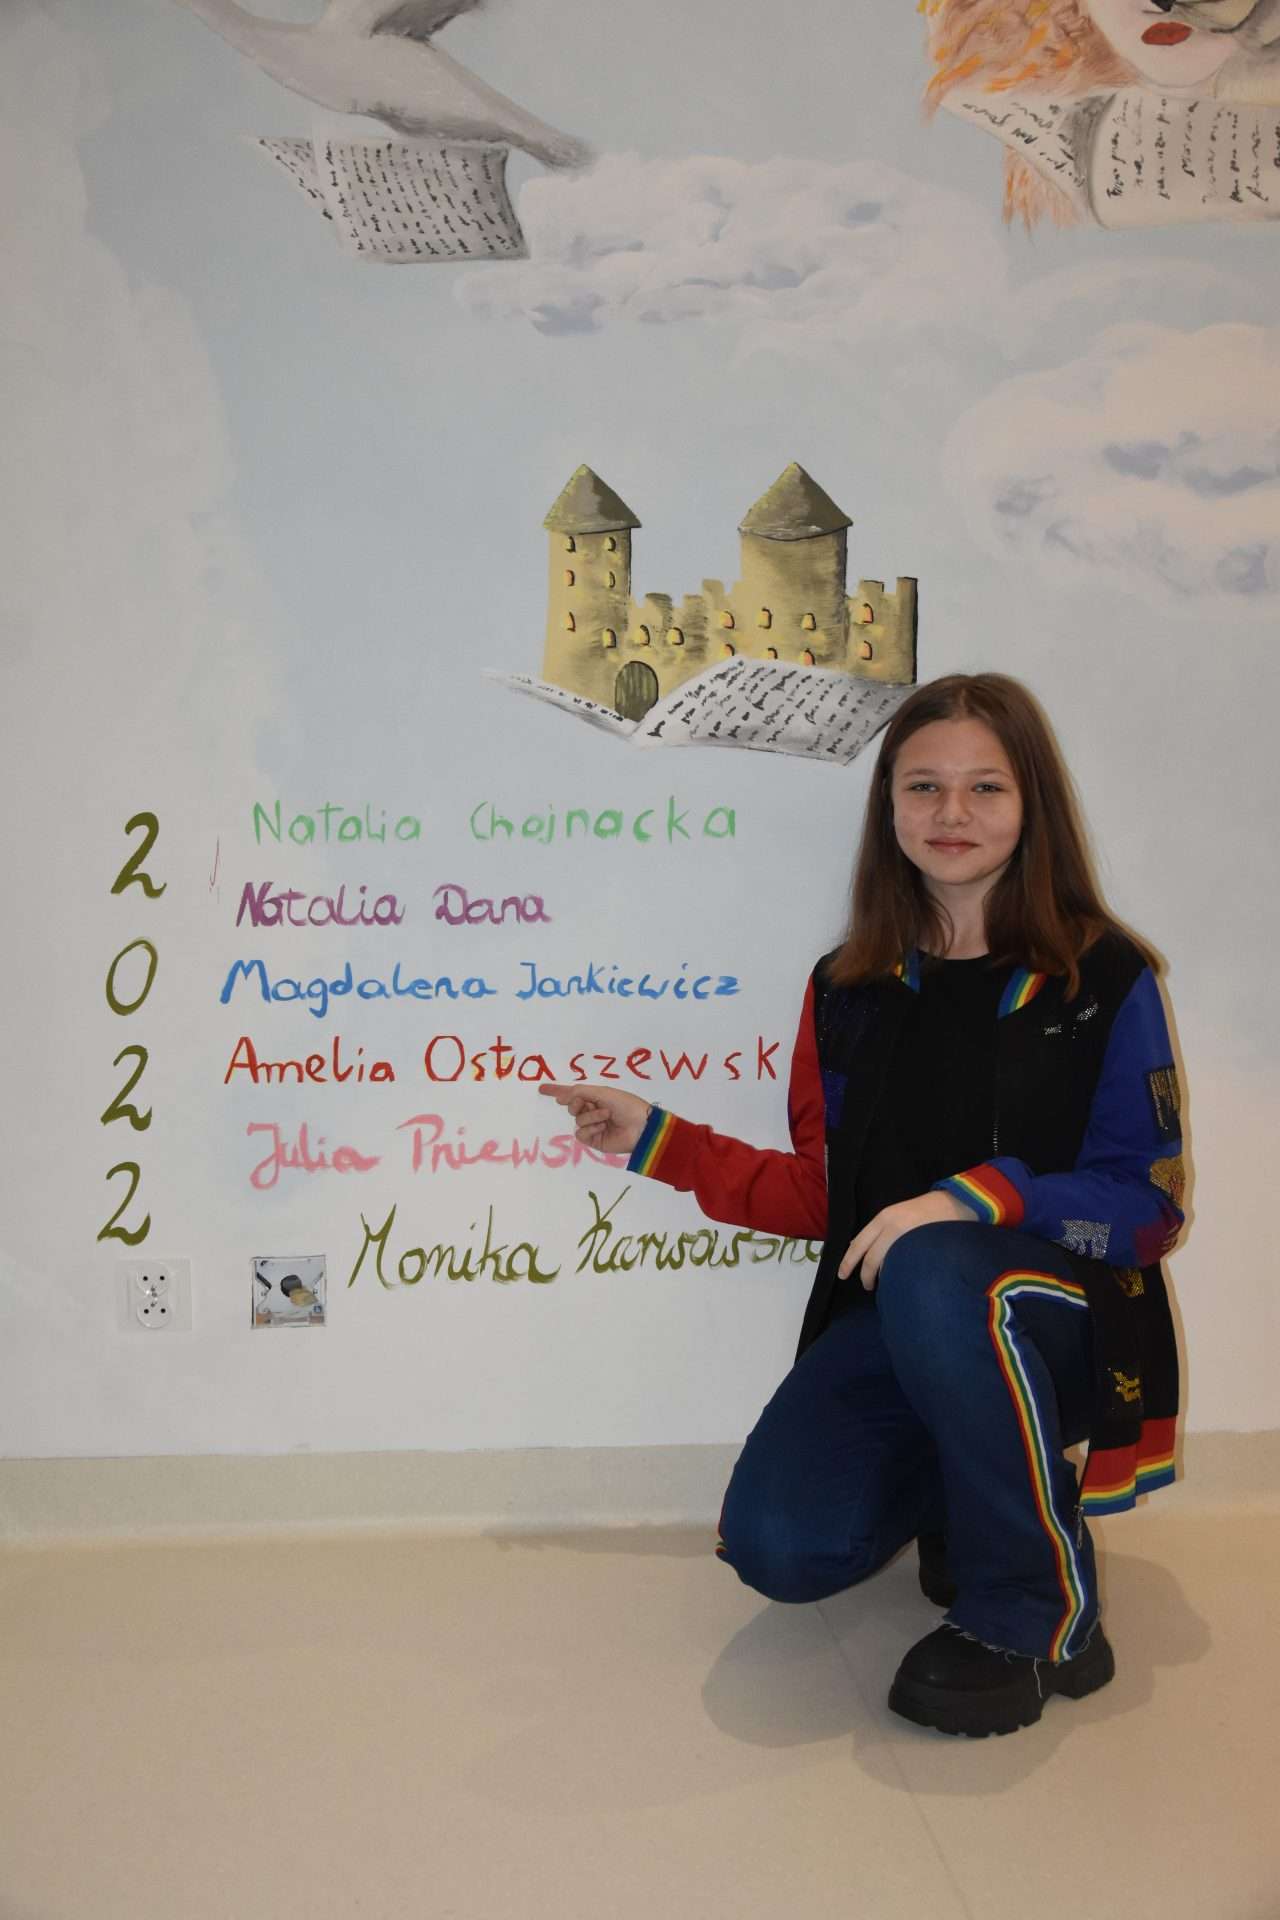 2 0 2 2
Natalia Chojnacka
Natalia Dana
Magdalena Jankiewicz
Amelia Ostaszewsk
Julia Pniewsk
Monika Karwowska